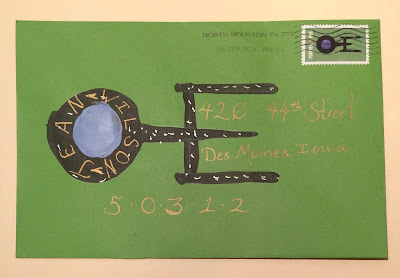 NORTH HOUSTON TX 773
JEAN WILSON
420 44th Street
Des Moines, Iowa
5·0·3·1·2